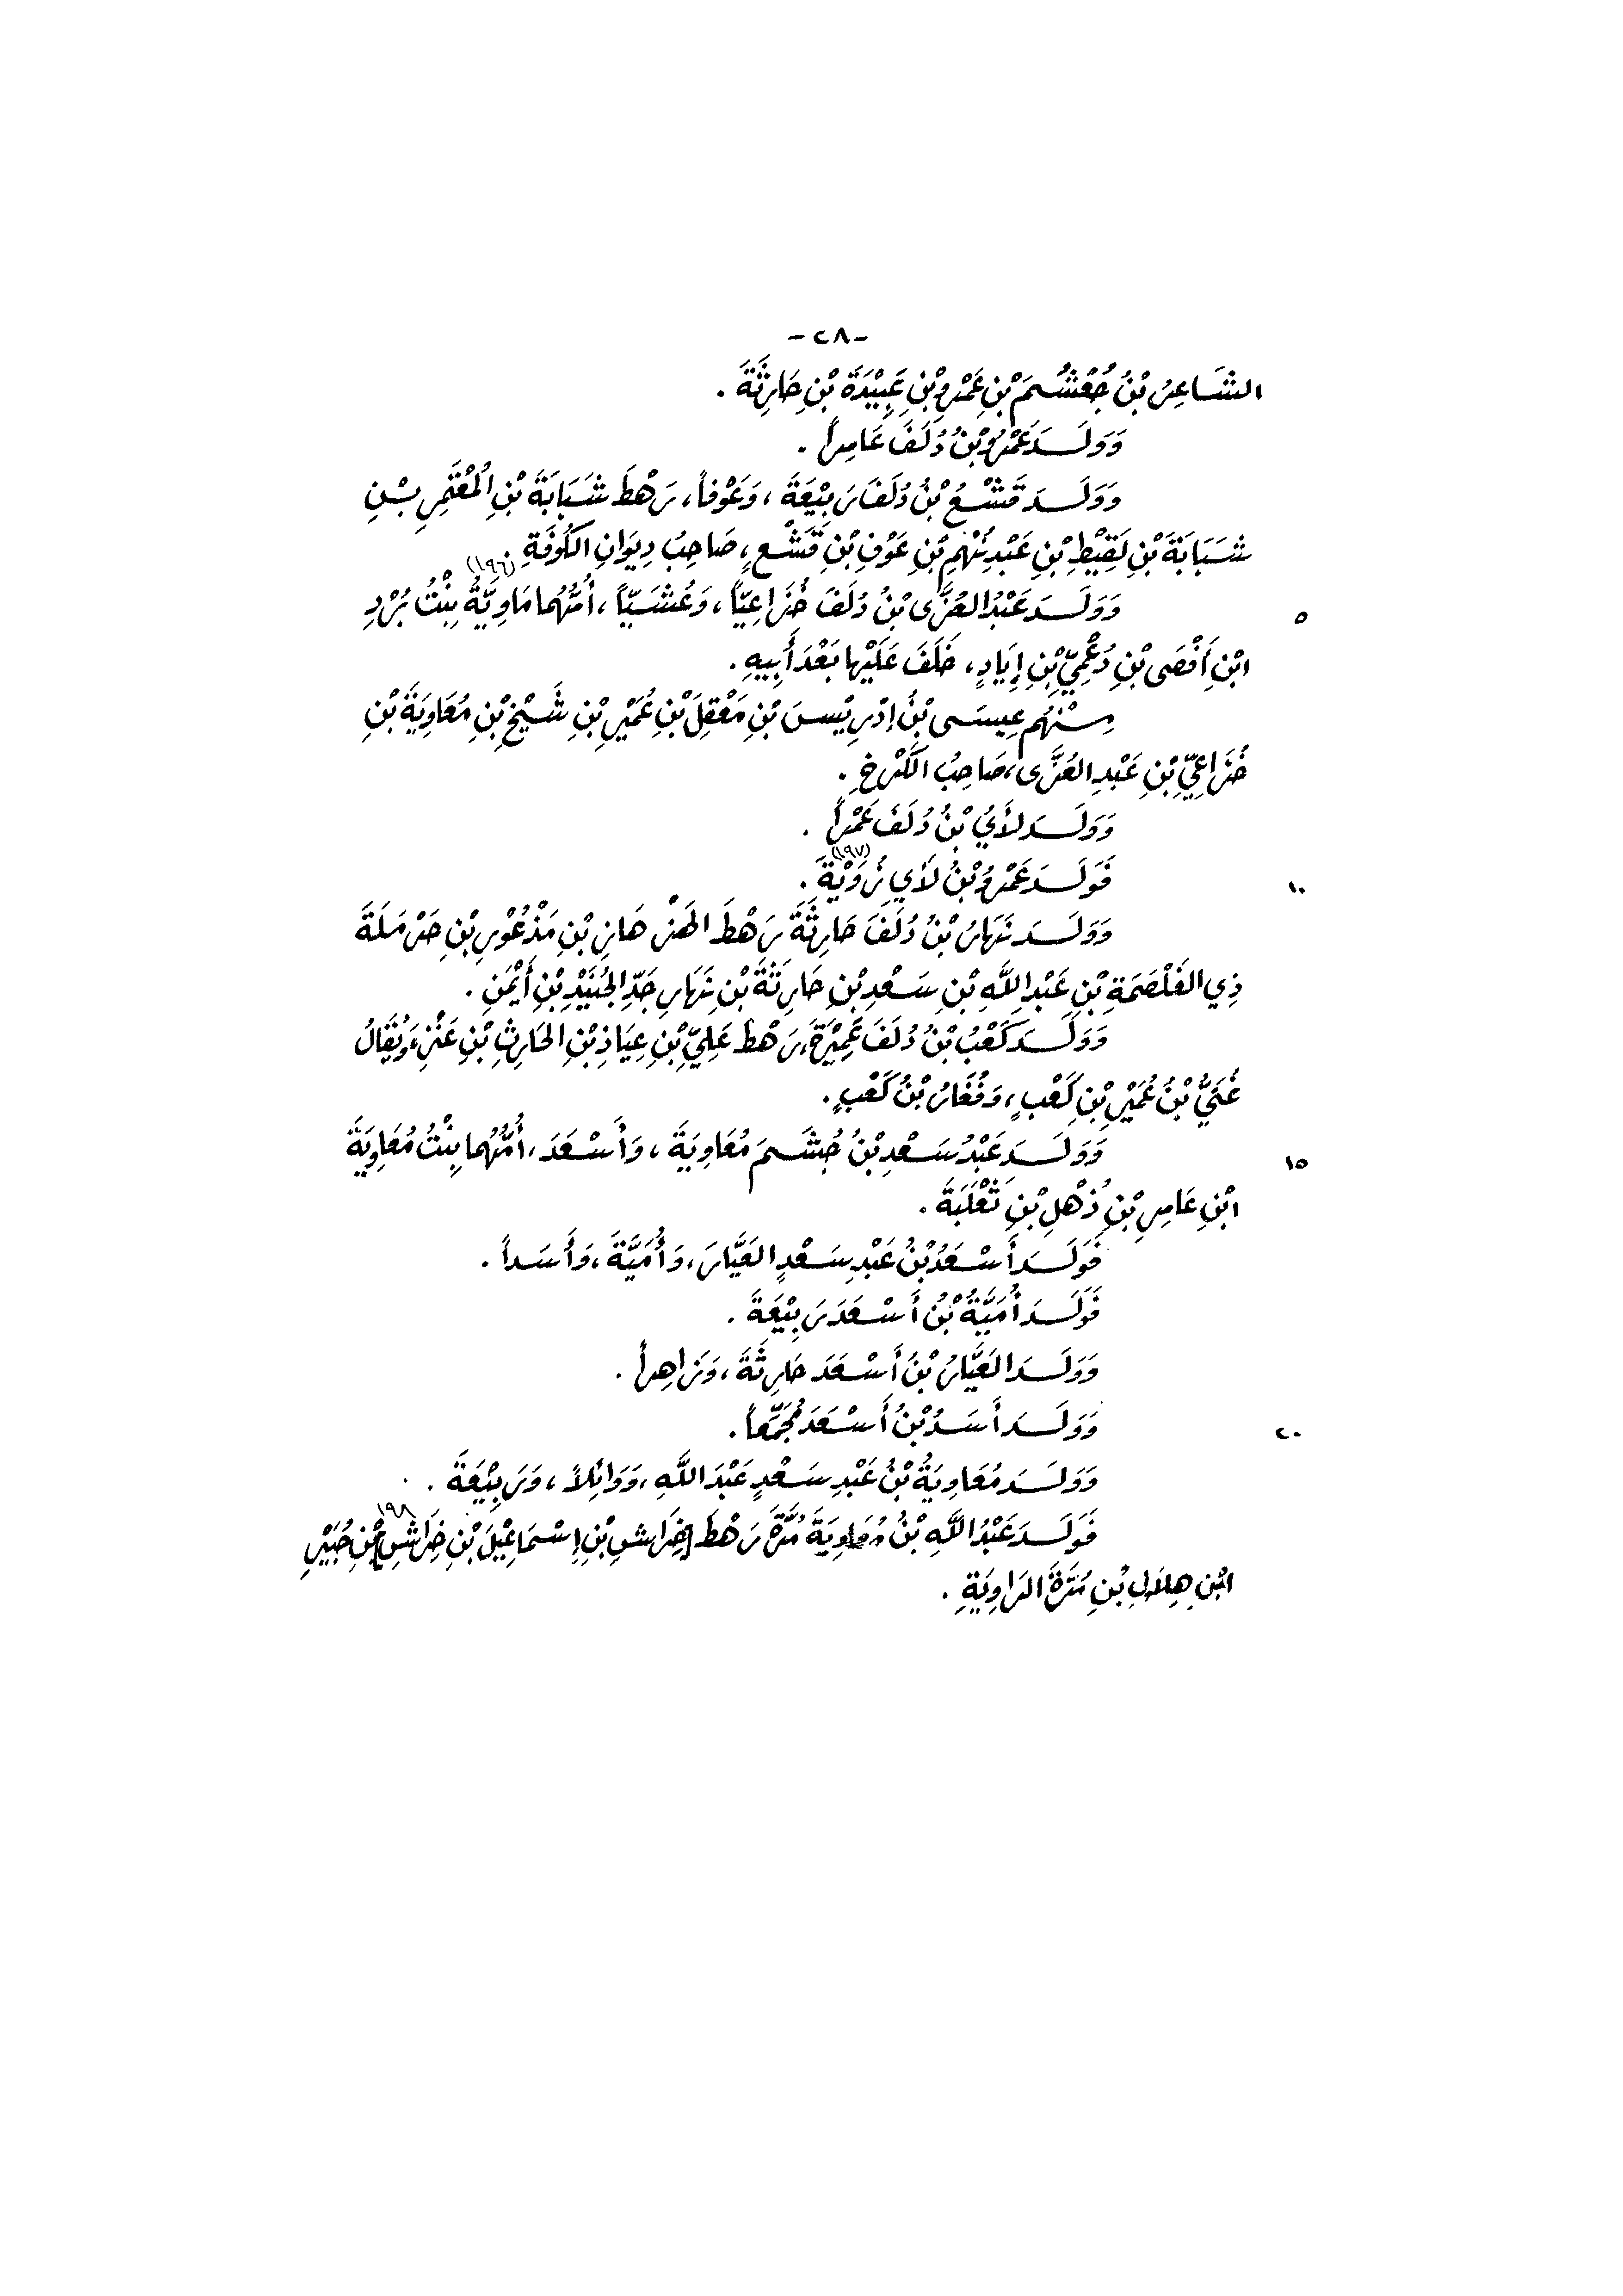 -٢٨-
الشَاعِرُ بْنُ جُعْشُمَ بْنِ عَمْرِو بْنِ عَبِيْدَةَ بْنِ حَارِثَةَ .
وَوَلَـــدَ عَمْرُو بْنُ دُلَفَ عَامِراً .
وَوَلَـــدَ قَشْعُ بْنُ دُلَفَ رَبِيْعَةَ ، وَعَوْفاً ، رَهْطَ شَبَابَةَ بْنِ المُعْتَمِرِ بْـــنِ
شَبَابَةَ بْنِ لَقِيْطِ بْنِ عَبْدِنُهْمِ بْنِ عَوْفِ بْنِ قَشْعٍ ، صَاحِبُ دِيوَانِ الكُوفَةِ .(١٩٦)
٥ وَوَلَـــدَ عَبْدُ العُزَّى بْنُ دُلَفَ خُزَاعِيّاً ، وَعُشَيّاً ، أُمُّهُما مَاوِيَّةُ بِنْتُ بُرْدِ
ابْنِ أَفْصَى بْنِ دُعْمِيِّ بْنِ إِيَادٍ ، خَلَفَ عَلَيْها بَعْدَ أَبِيهِ .
مِـــنْهُم عِيسَى بْنُ إِدْرِيْسَ بْنِ مَعْقِلَ بْنِ عُمَيْرِ بْنِ شَيْخِ بْنِ مُعَاوِيَةَ بْنِ
خُزَاعِيِّ بْنِ عَبْدِ العُزَّى ، صَاحِبُ الكَرْخِ .
وَوَلَـــدَ لأَيُ بْنُ دُلَفَ عَمْراً .
١٠ فَوَلَـــدَ عَمْرُو بْنُ لأَيِ رُوَيْةَ .(١٩٧)
وَوَلَـــدَ نَهَارُ بْنُ دُلَفَ حَارِثَةَ رَهْطَ الهَزْ هَازِ بْنِ مَذْعُوْرِ بْنِ حَرْمَلَةَ
ذِي الغَلْصَمَةِ بْنِ عَبْدِ اللَّهِ بْنِ سَعْدِ بْنِ حَارِثَةَ بْنِ نَهَارِ جَدِّ الجُنَيْدِ بْنِ أَيْمَنِ .
وَوَلَـــدَ كَعْبُ بْنُ دُلَفَ عَمِيْرَةَ ، رَهْطَ عَلِيِّ بْنِ عِيَاذِ بْنِ الحَارِثِ بْنِ عَنْزِ ، وَيُقَالُ
غُنَيُّ بْنُ عُمَيْرِ بْنِ كَعْبٍ ، وَفُغَارُ بْنُ كَعْبٍ .
١٥ وَوَلَـــدَ عَبْدُ سَعْدِ بْنُ جُشَمَ مُعَاوِيَةَ ، وَأَسْعَدَ ، أُمُّهُما بِنْتُ مُعَاوِيَةَ
ابْنِ عَامِرِ بْنِ ذُهْلِ بْنِ ثَعْلَبَةَ .
فَوَلَـــدَ أَسْعَدُ بْنُ عَبْدِ سَعْدٍ العَيَّارَ ، وَأُمَيَّةَ ، وَأَسَداً .
فَوَلَـــدَ أُمَيَّةُ بْنُ أَسْعَدَ رَبِيْعَةَ .
وَوَلَـــدَ العَيَّارُ بْنُ أَسْعَدَ حَارِثَةَ ، وَزَاهِراً .
٢٠ وَوَلَـــدَ أَسَدُ بْنُ أَسْعَدَ مُجَمِّعاً .
وَوَلَـــدَ مُعَاوِيَةُ بْنُ عَبْدِ سَعْدٍ عَبْدَ اللَّهِ ، وَوَائِلاً ، وَرَبِيْعَةَ .
فَوَلَـــدَ عَبْدُ اللَّهِ بْنُ مُعَاوِيَةَ مُرَّةَ رَهْطَ [خِرَاشِ بْنِ إِسْمَاعِيْلَ بْنِ خِرَاشِ] بْنِ جُبَيْرِ ١٩٨
ابْنِ هِلاَلِ بْنِ مُرَّةَ الرَاوِيَةِ .